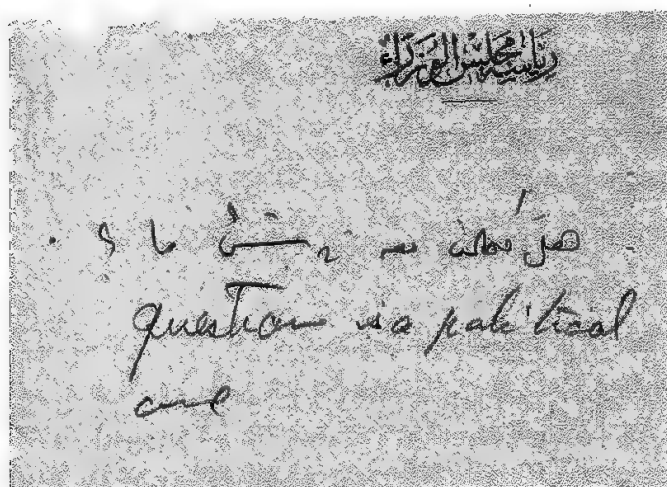 رياسة مجلس الوزراء
هل ما ؟
question is a political
one